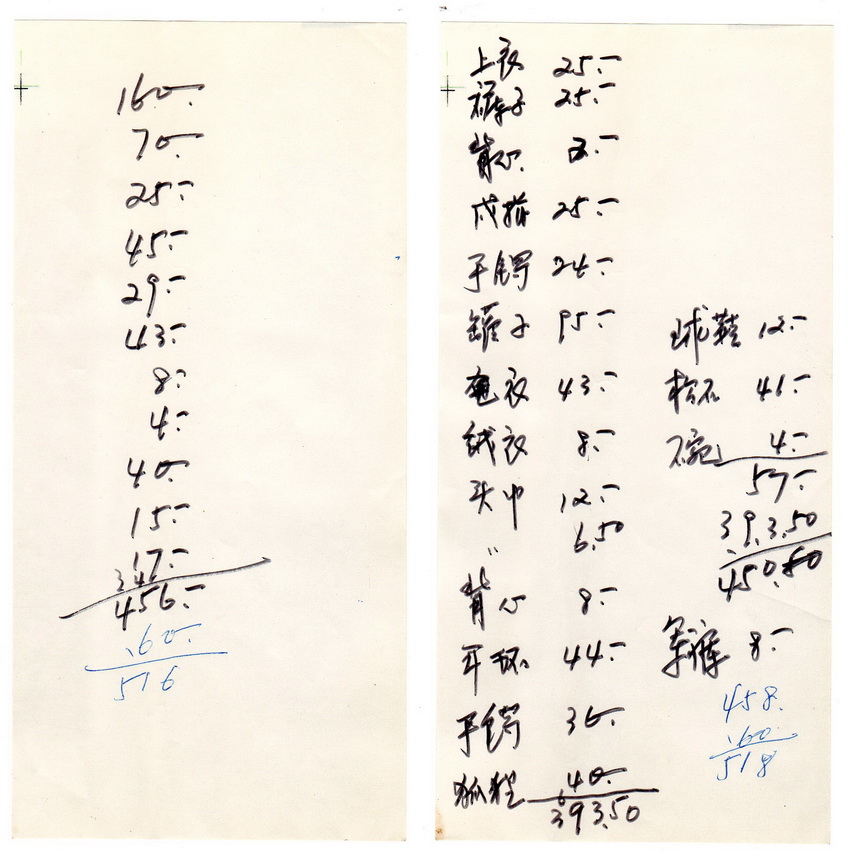 160.-
70.-
25.-
45.-
29.-
43.-
8.-
4.-
40.-
15.-
17.-
456.-
60.-
516
上衣 25.-
裤子 25.-
背心 8.-
戒指 25.-
手镯 24.-
罐子 95.-
衣 43.-
绒衣 8.-
头巾 12.-
〃 6.50
背心 8.-
耳环 44.-
手镯 30.-
狐狸 40.-
393.50
球鞋 12.-
松石 41.-
碗 4.-
57.-
393.50
450.50
军裤 8.-
458.
60.
518